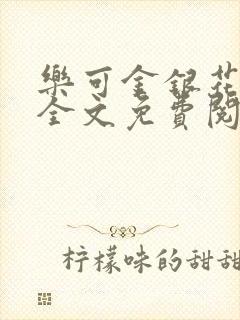 樂可金銀花
全文免費閱
柠檬味的甜甜